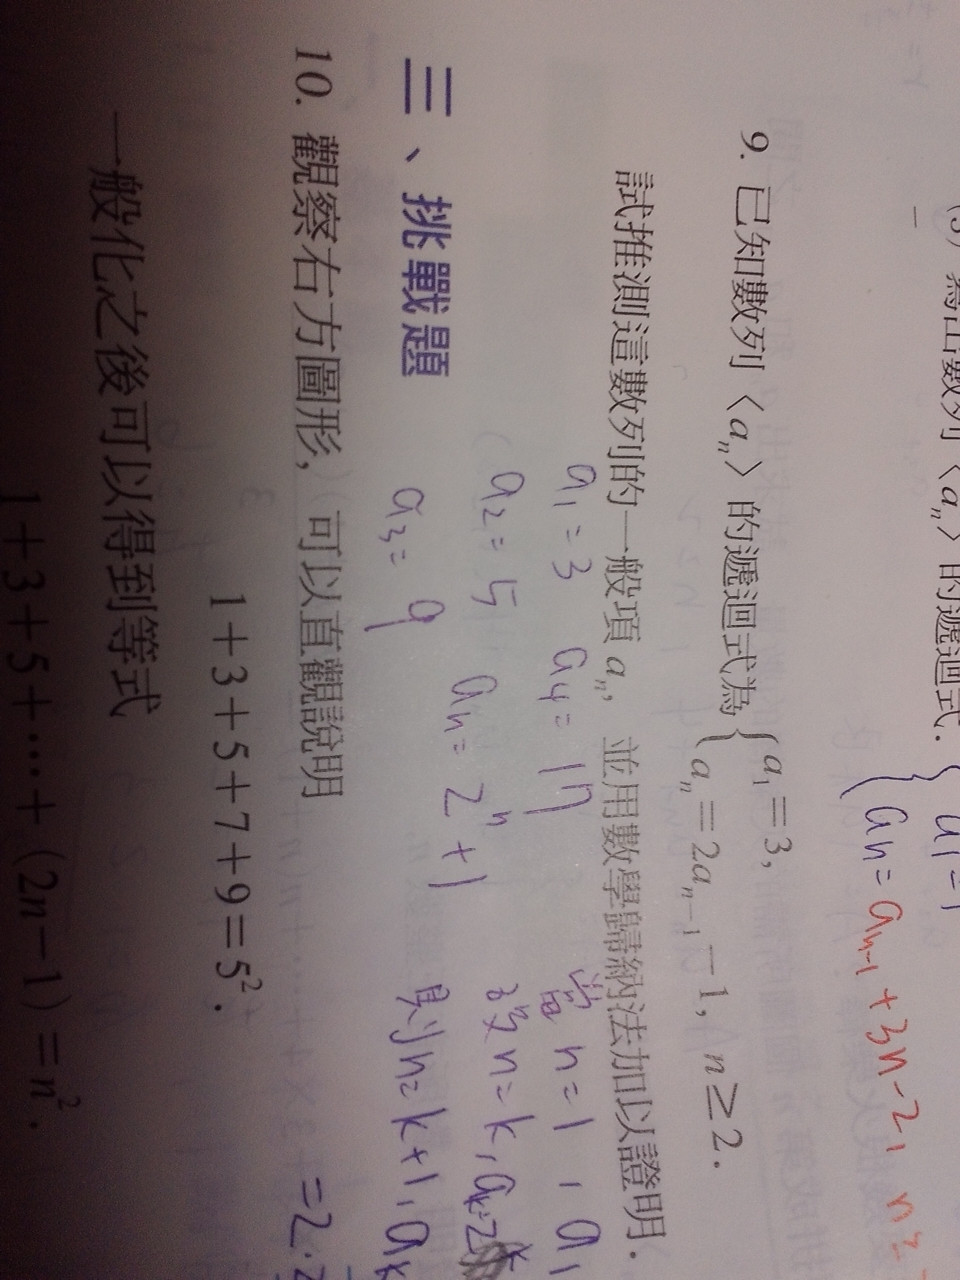 (3) 寫出數列〈aₙ〉的遞迴式. { a₁=1
aₙ=aₙ₋₁+3n-2, n≥
9. 已知數列〈aₙ〉的遞迴式為 { a₁=3,
aₙ=2aₙ₋₁-1, n≥2.
試推測這數列的一般項 aₙ, 並用數學歸納法加以證明.
a₁=3 a₄=17 當 n=1, a₁
a₂=5 aₙ=2ⁿ+1 設 n=k, aₖ=2ᵏ
a₃=9 則 n=k+1, aₖ
=2.2
三、挑戰題
10. 觀察右方圖形, 可以直觀說明
1+3+5+7+9=5².
一般化之後可以得到等式
1+3+5+⋯+(2n-1)=n².